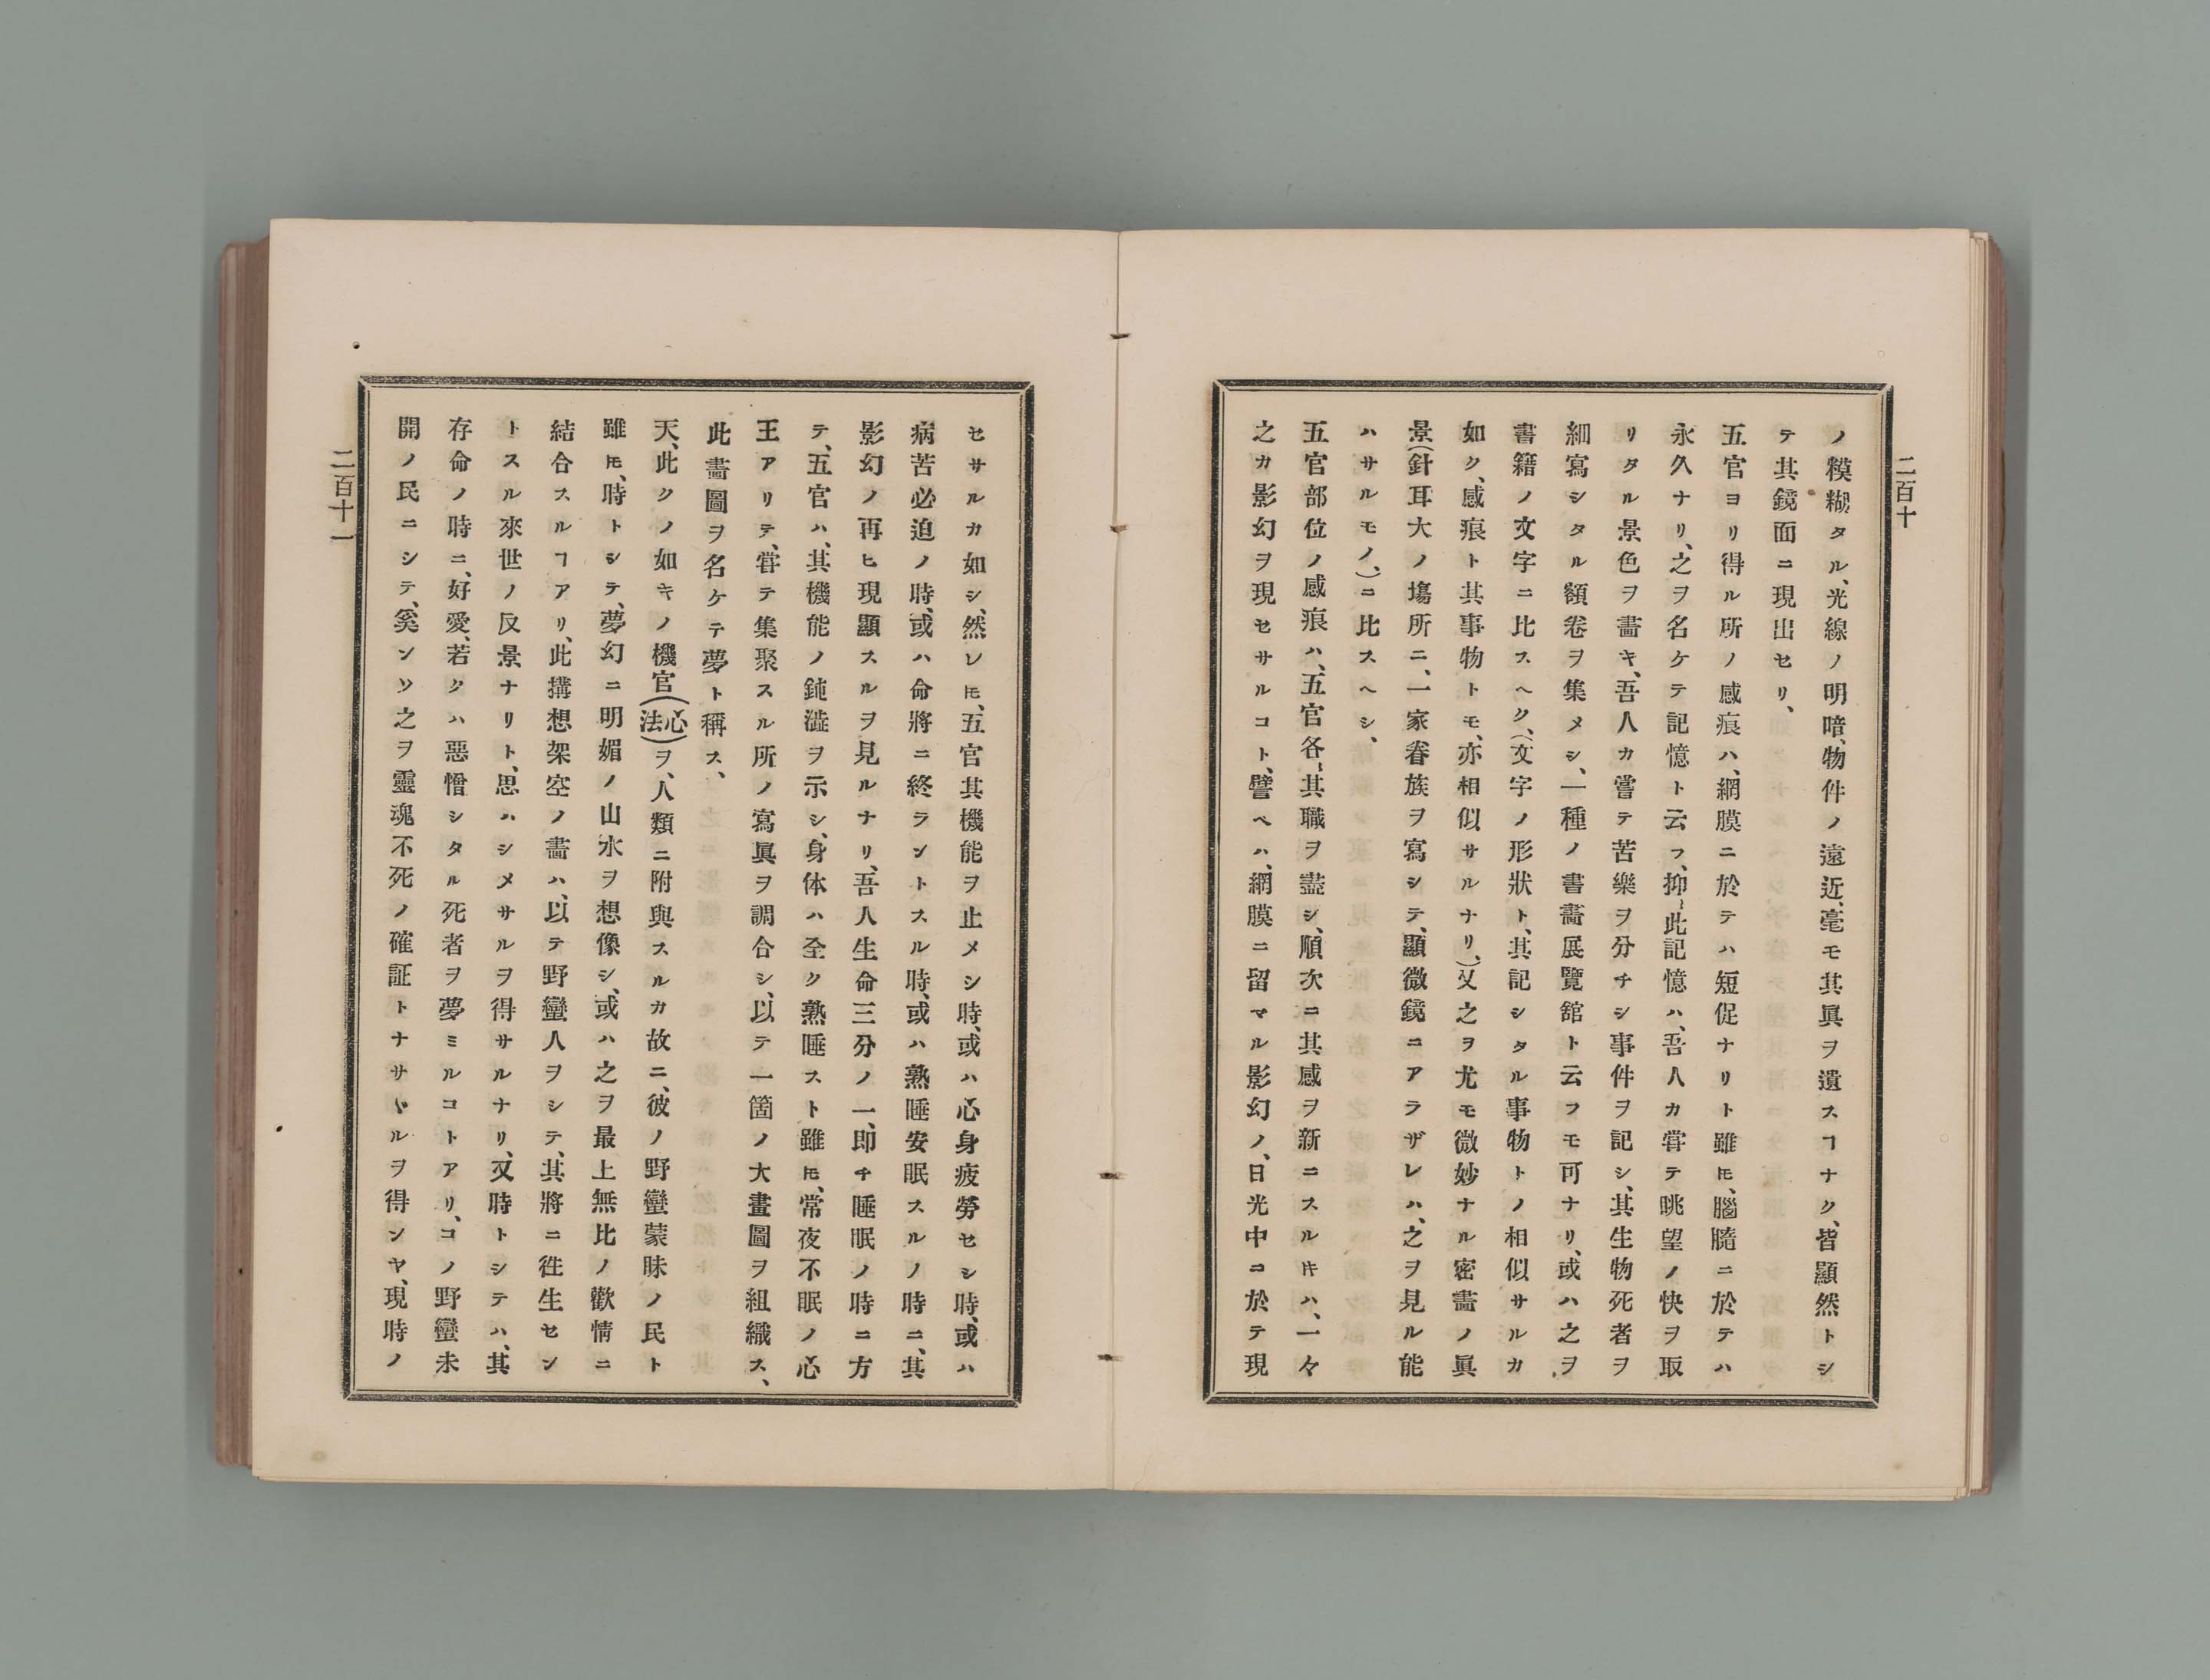 二百十
ノ糢糊タル、光線ノ明暗、物件ノ遠近、毫モ其眞ヲ遺スヿナク、皆顯然トシ
テ其鏡面ニ現出セリ、
五官ヨリ得ル所ノ感痕ハ、網膜ニ於テハ短促ナリト雖𪜈、腦髓ニ於テハ
永久ナリ、之ヲ名ケテ記憶ト云フ、抑〻此記憶ハ、吾人カ甞テ眺望ノ快ヲ取
リタル景色ヲ畵キ、吾人カ嘗テ苦樂ヲ分チシ事件ヲ記シ、其生物死者ヲ
細寫シタル額卷ヲ集メシ、一種ノ書畵展覽舘ト云フモ可ナリ、或ハ之ヲ
書籍ノ文字ニ比スヘク、(文字ノ形狀ト、其記シタル事物トノ相似サルカ
如ク、感痕ト其事物トモ、亦相似サルナリ、)又之ヲ尤モ微妙ナル密畵ノ眞
景(針耳大ノ塲所ニ、一家眷族ヲ寫シテ、顯微鏡ニアラザレハ、之ヲ見ル能
ハサルモノ、)ニ比スヘシ、
五官部位ノ感痕ハ、五官各〻其職ヲ盡シ、順次ニ其感ヲ新ニスルキハ、一々
之カ影幻ヲ現セサルコト、譬ヘハ、網膜ニ留マル影幻ノ、日光中ニ於テ現
セサルカ如シ、然レ𪜈、五官其機能ヲ止メシ時、或ハ心身疲勞セシ時、或ハ
病苦必迫ノ時、或ハ命將ニ終ラントスル時、或ハ熟睡安眠スルノ時ニ、其
影幻ノ再ヒ現顯スルヲ見ルナリ、吾人生命三分ノ一、即チ睡眠ノ時ニ方
テ、五官ハ、其機能ノ鈍澁ヲ示シ、身体ハ全ク熟睡スト雖𪜈、常夜不眠ノ心
王アリテ、甞テ集聚スル所ノ寫眞ヲ調合シ、以テ一箇ノ大畫圖ヲ組織ス、
此畵圖ヲ名ケテ夢ト稱ス、
天、此クノ如キノ機官(心法)ヲ、人類ニ附與スルカ故ニ、彼ノ野蠻蒙昧ノ民ト
雖𪜈、時トシテ、夢幻ニ明媚ノ山水ヲ想像シ、或ハ之ヲ最上無比ノ歡情ニ
結合スルヿアリ、此搆想架空ノ畵ハ、以テ野蠻人ヲシテ、其將ニ徃生セン
トスル來世ノ反景ナリト、思ハシメサルヲ得サルナリ、又時トシテハ、其
存命ノ時ニ、好愛、若クハ惡憎シタル死者ヲ夢ミルコトアリ、コノ野蠻未
開ノ民ニシテ、奚ンソ之ヲ靈魂不死ノ確証トナサヾルヲ得ンヤ、現時ノ
二百十一